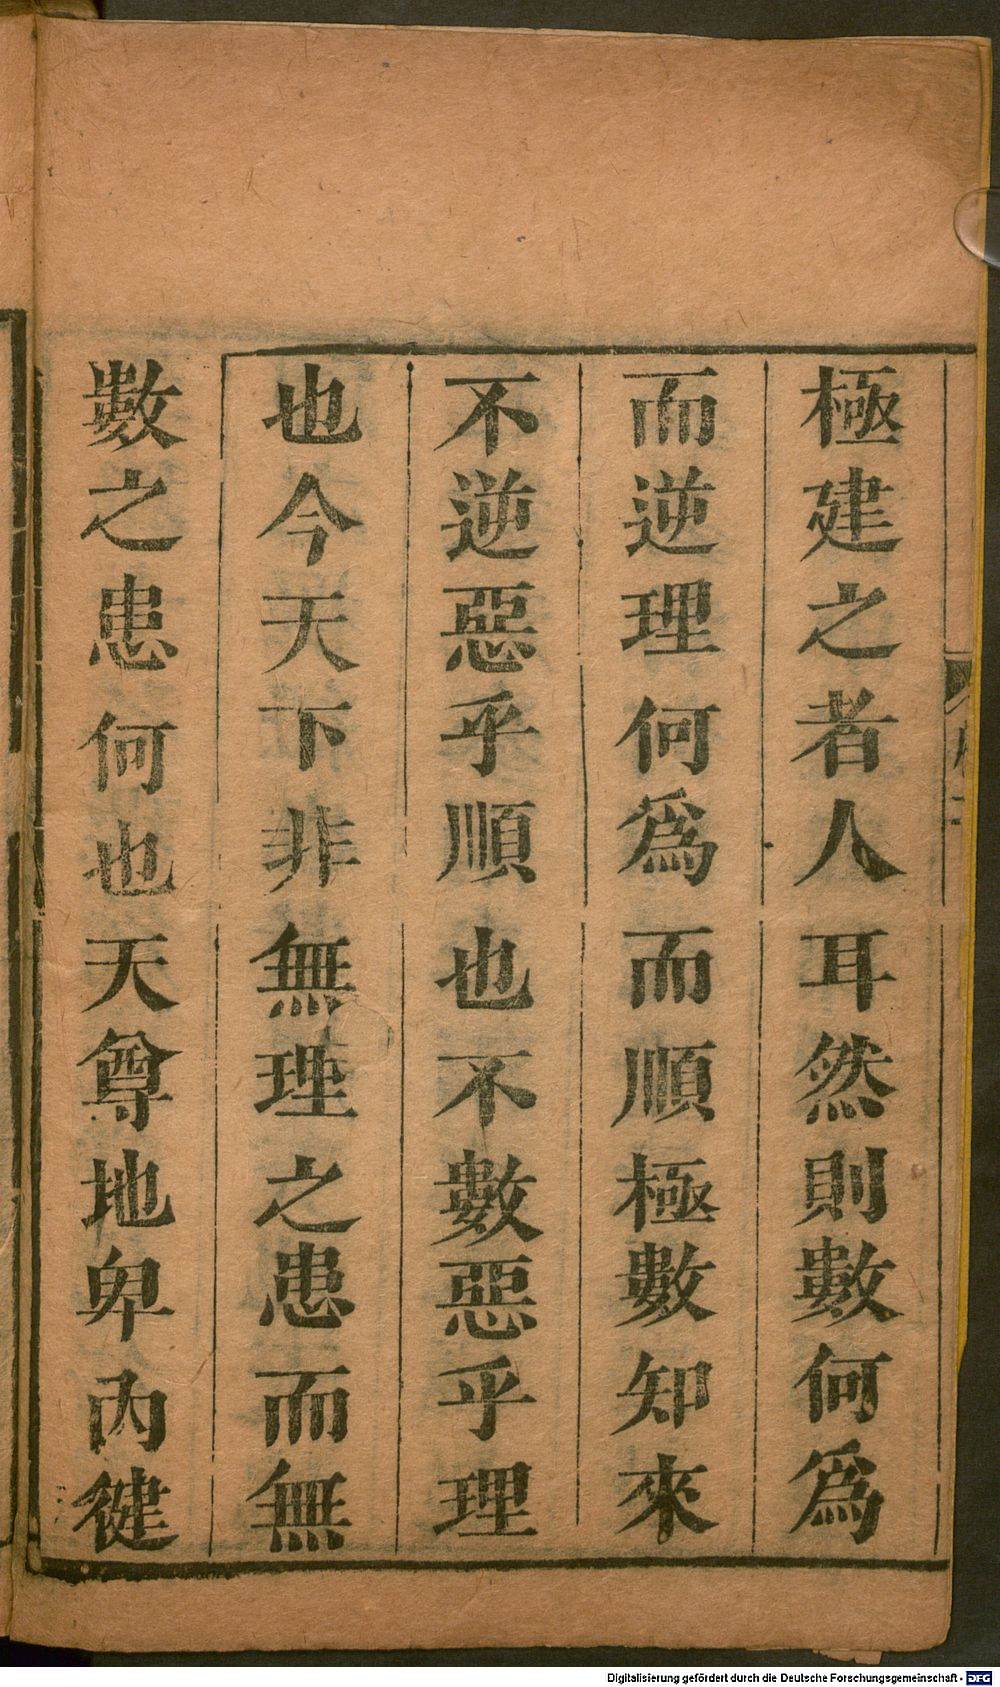 極建之者人耳然則數何爲
而逆理何爲而順極數知來
不逆惡乎順也不數惡乎理
也今天下非無理之患而無
數之患何也天尊地卑內健
Digitalisierung gefördert durch die Deutsche Forschungsgemeinschaft - DFG